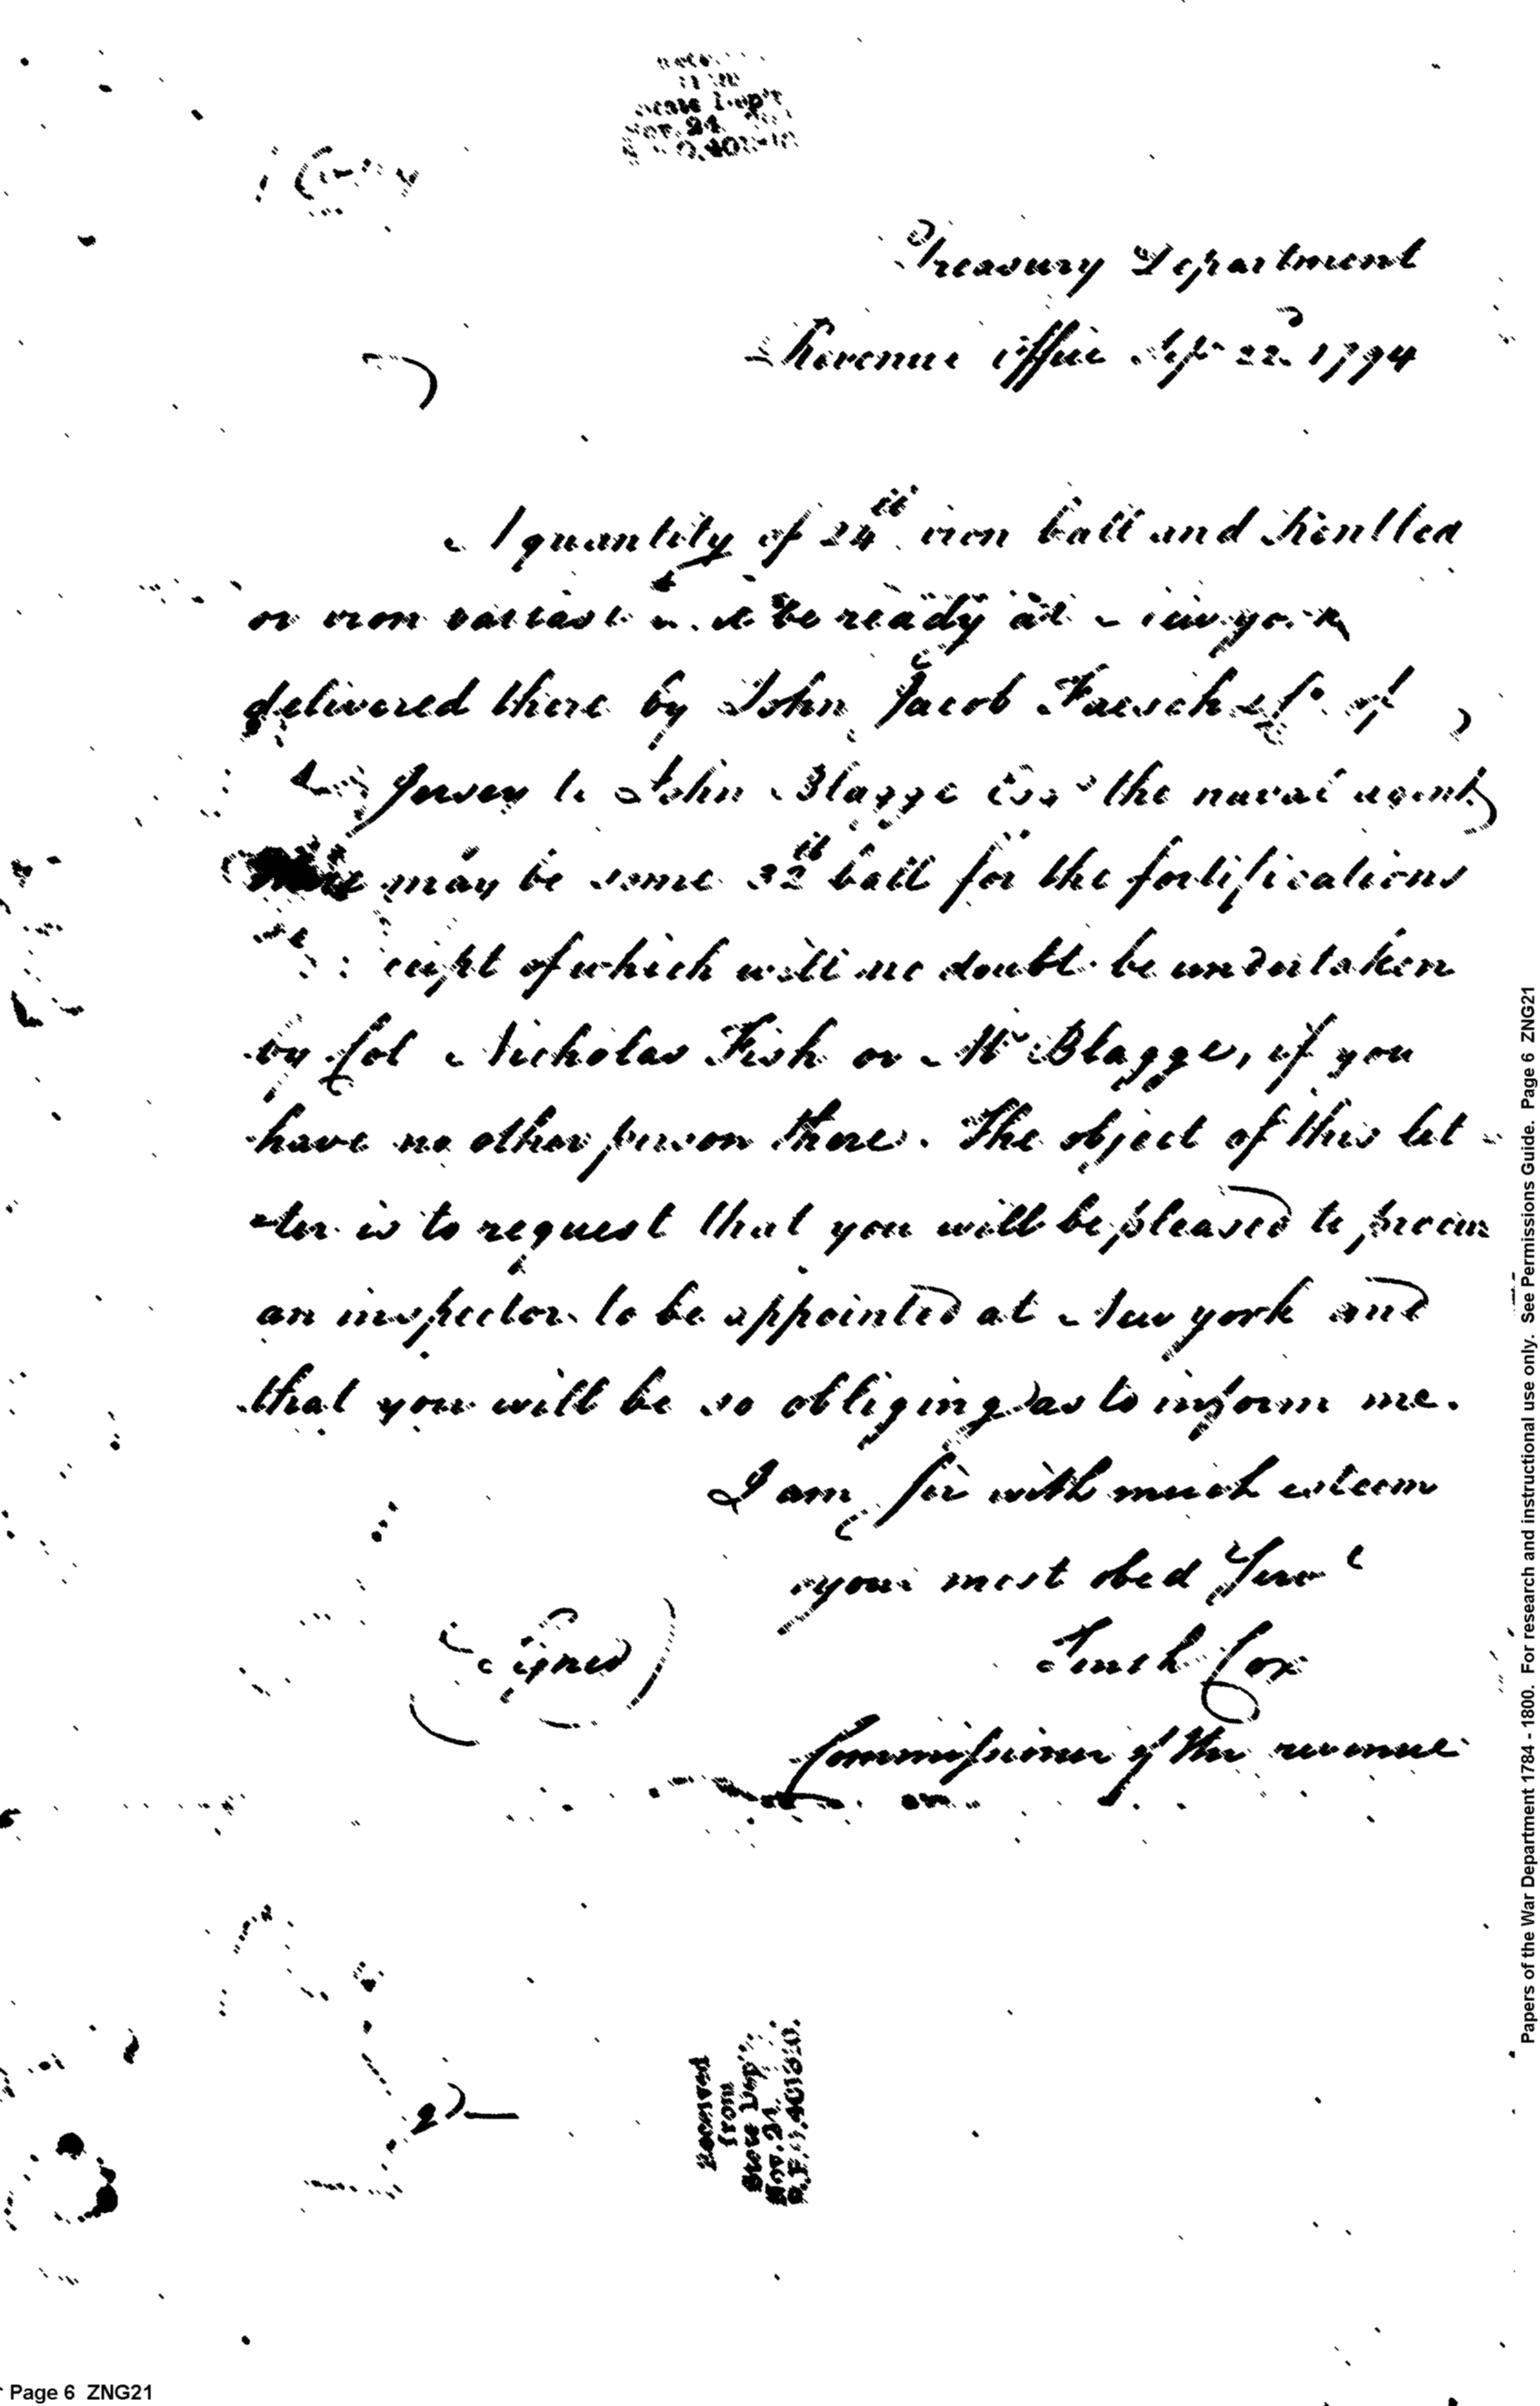 (Copy)
Received
from
State Dep't
Nov. 24
Treasury Department
Revenue office Sept 22d 1794
A quantity of 24 lb. iron ball and Kentled
or iron ballast will be ready at New york
delivered there by John Jacob Faesch Esqr. of
New Jersey to John Blagge Esqr the naval agent
There may be some 32 lb ball for the fortifications
receipt of which will no doubt be undertaken
by Col Nicholas Fish or Mr Blagge, if you
have no other person there. The object of this let
-ter is to request that you will be pleased to procure
an inspector to be appointed at New york and
that you will be so obliging as to inform me.
I am, Sir with much esteem
your most obed Servt
(Signed)
Tench Coxe
Commissioner of the revenue
Received
from
State Dep't
Nov. 24
Papers of the War Department 1784 - 1800. For research and instructional use only. See Permissions Guide. Page 6 ZNG21
Page 6 ZNG21